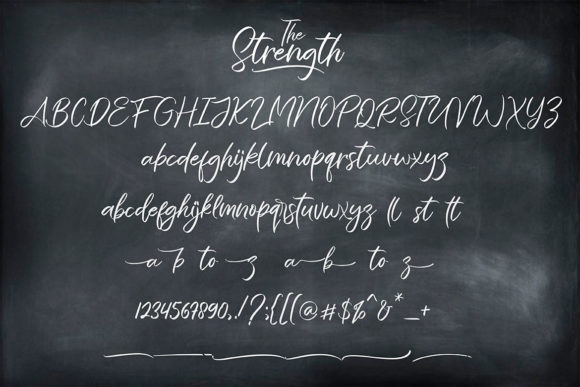 The
Strength
ABCDEFGHIJKLMNOPQRSTUVWXYZ
abcdefghijklmnopqrstuvwxyz
abcdefghijklmnopqrstuvwxyz ll st tt
a b to z a b to z
1234567890,.!?;{[(@#$%^&*_+